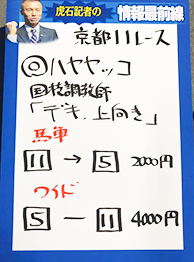 虎石記者の
情報最前線
京都11レース
◎ハヤヤッコ
国枝調教師
「デキ、上向き」
馬単
11→5 2000円
ワイド
5-11 4000円